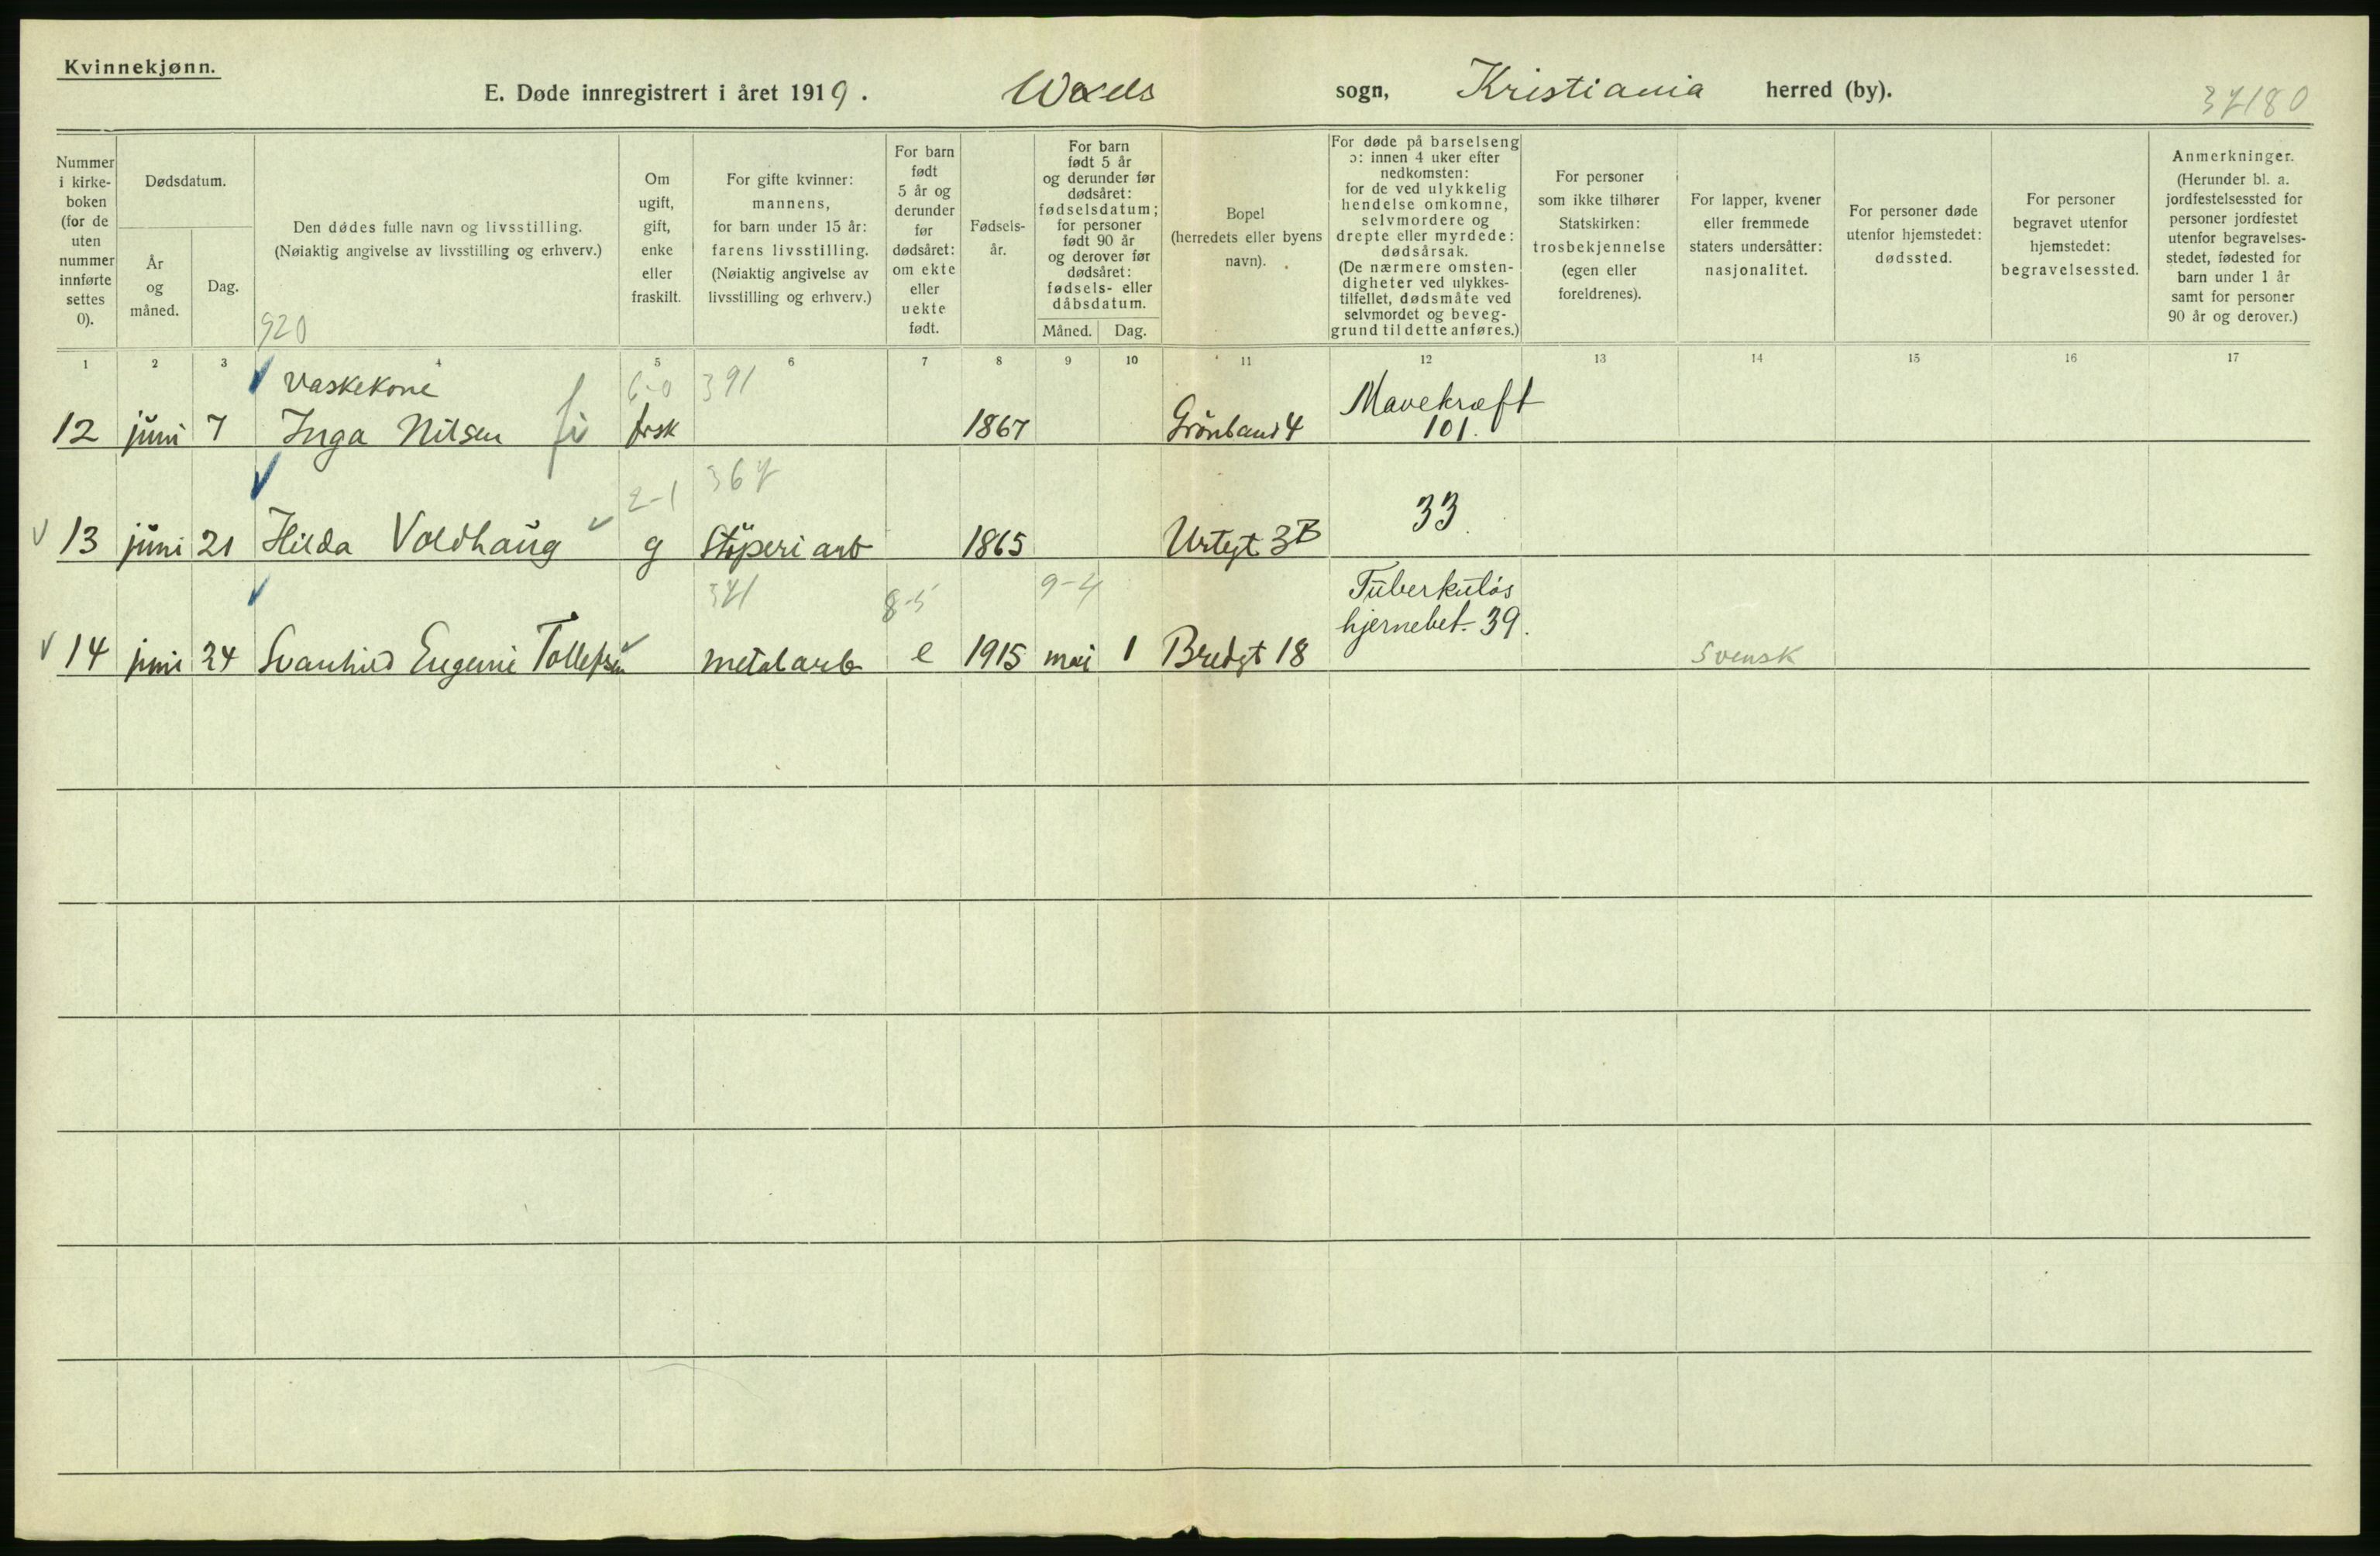 Kvinnekjønn.
E. Døde innregistrert i året 1919. Wexels sogn, Kristiania herred (by).
Nummer i kirke-boken (for de uten nummer innførte settes 0).
Dødsdatum.
År og måned.
Dag.
Den dødes fulle navn og livsstilling.
(Nøiaktig angivelse av livsstilling og erhverv.)
920
Om ugift, gift, enke eller fraskilt.
For gifte kvinner: mannens, for barn under 15 år: farens livsstilling. (Nøiaktig angivelse av livsstilling og erhverv.)
For barn født 5 år og derunder før dødsåret: om ekte eller uekte født.
Fødsels-år.
For barn født 5 år og derunder før dødsåret: fødselsdatum; for personer født 90 år og derover før dødsåret: fødsels- eller dåbsdatum.
Måned. Dag.
Bopel (herredets eller byens navn).
For døde på barselseng ɔ: innen 4 uker efter nedkomsten: for de ved ulykkelig hendelse omkomne, selvmordere og drepte eller myrdede: dødsårsak. (De nærmere omsten-digheter ved ulykkes-tilfellet, dødsmåte ved selvmordet og beveg-grund til dette anføres.)
For personer som ikke tilhører Statskirken: trosbekjennelse (egen eller foreldrenes).
For lapper, kvener eller fremmede staters undersåtter: nasjonalitet.
For personer døde utenfor hjemstedet: dødssted.
For personer begravet utenfor hjemstedet: begravelsessted.
Anmerkninger. (Herunder bl. a. jordfestelsessted for personer jordfestet utenfor begravelses-stedet, fødested for barn under 1 år samt for personer 90 år og derover.)
1 2 3 4 5 6 7 8 9 10 11 12 13 14 15 16 17
Vaskekone 6-0 391 Mavekræft
12 juni 7 Inga Nilsen frsk 1867 101.
2-1 367 33
13 juni 21 Hilda Voldhaug g Støperi arb 1865 Urtegt 3B
8-5 9-4 Tuberkuløs
hjernebet. 39.
14 juni 24 Svanhild Eugenie Tollefsen metalarb e 1915 mai 1 Bredgt 18 Svensk